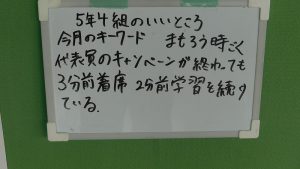 5年4組のいいところ
今月のキーワード まもろう時こく
代表員のキャンペーンが終わっても
3分前着席 2分前学習を続け
ている。